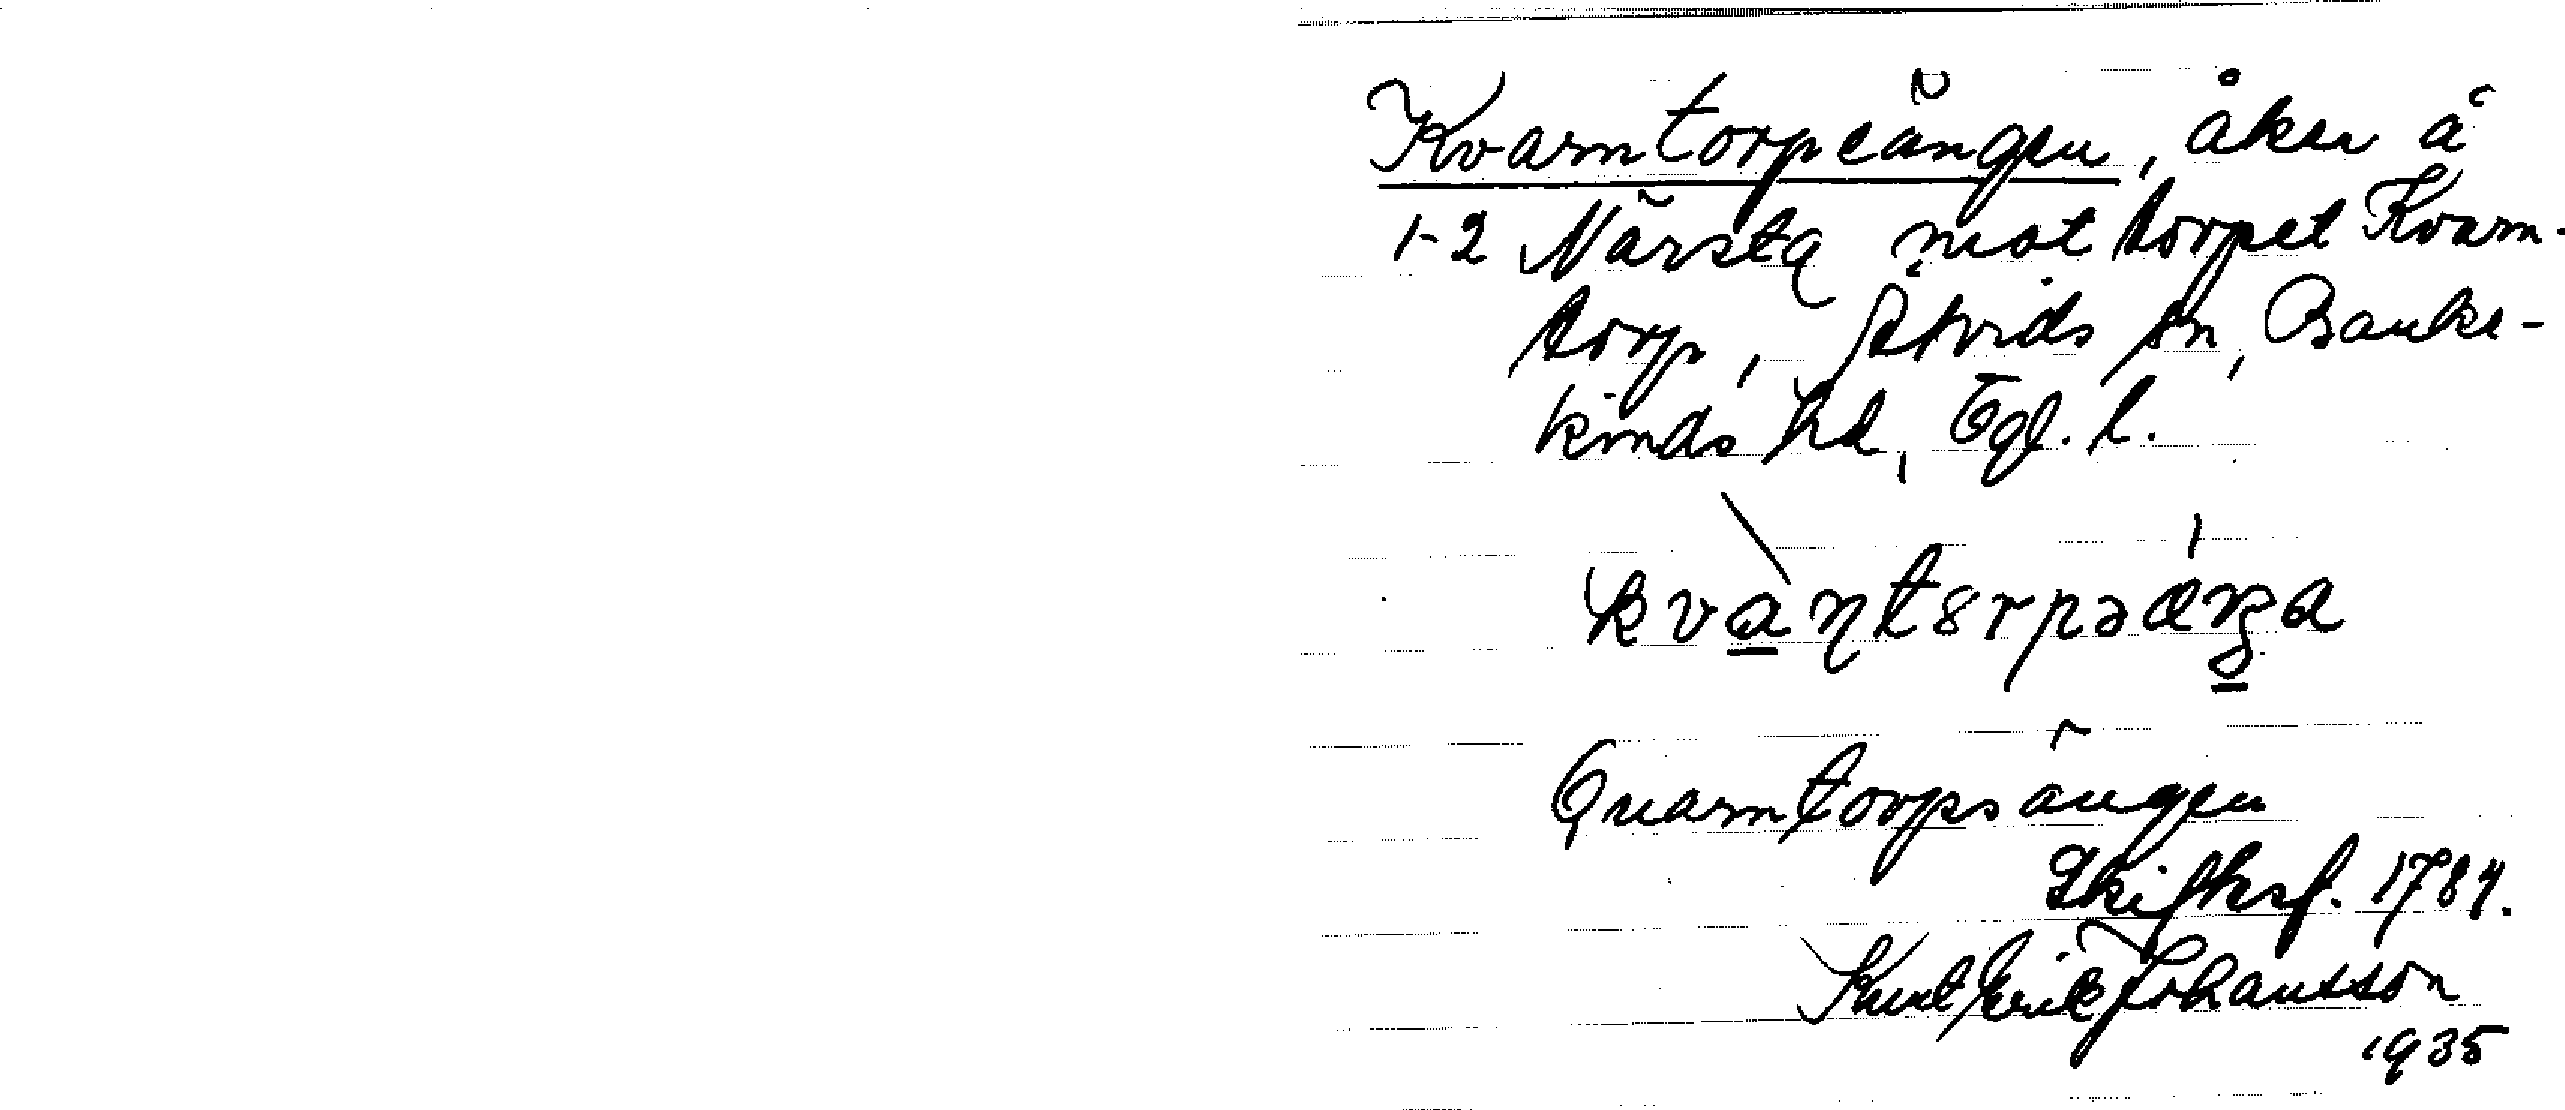 Kvarntorpeängen, åker å
1-2 Närsta mot torpet Kvarn-
torp, Åtvids sn, Banke-
kinds hd, Ögl. l.
kvàɳtorpəäŋa
Quarntorpsängen
Skifksf. 1784.
Knut Erik Johansson
1935